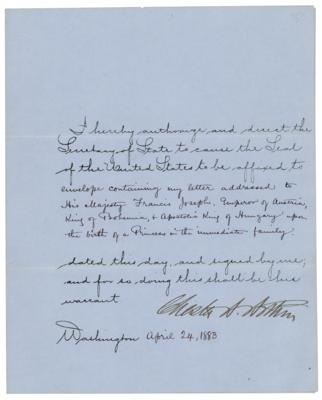 I hereby authorize and direct the
Secretary of State to cause the Seal
of the United States to be affixed to
envelope containing my letter addressed to
His Majesty Francis Joseph, Emperor of Austria,
King of Bohemia, & Apostolic King of Hungary upon
the birth of a Princess in the immediate family
dated this day, and signed by me;
and for so doing this shall be his
warrant
Chester A. Arthur
Washington April 24, 1883